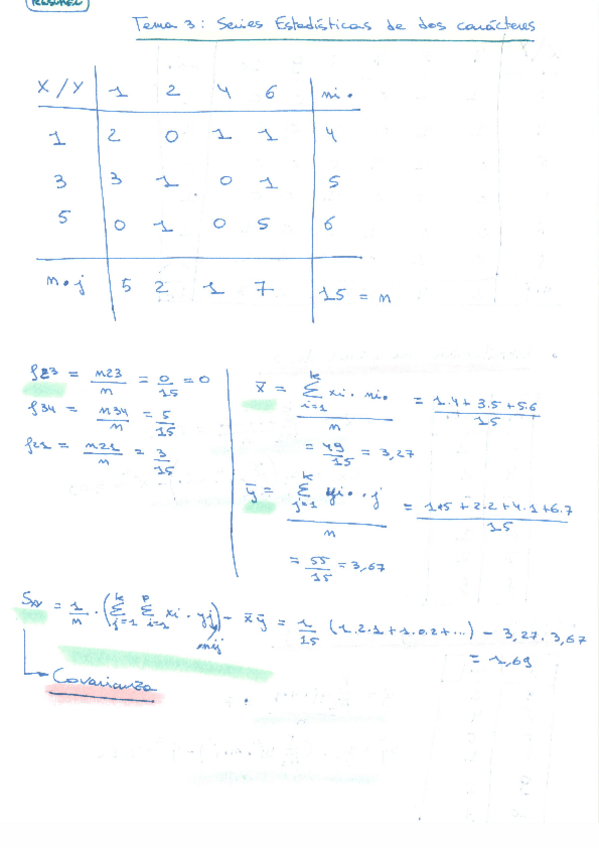 RESUMEN
Tema 3: Series Estadísticas de dos carácteres
X / Y 1 2 4 6 ni•
1 2 0 1 1 4
3 3 1 0 1 5
5 0 1 0 5 6
n•j 5 2 1 7 15 = n
f23 = n23/n = 0/15 = 0
f34 = n34/n = 5/15
f21 = n21/n = 3/15
x̄ = Σ(i=1, k) xi · ni• / n = 1·4 + 3·5 + 5·6 / 15
= 49/15 = 3,27
ȳ = Σ(j=1, k) yj • j / n = 1·5 + 2·2 + 4·1 + 6·7 / 15
= 55/15 = 3,67
Sxy = 1/n · (Σ(j=1, k) Σ(i=1, p) xi · yj nij) - x̄ȳ = 1/15 (1·2·1 + 1·0·2 + ...) - 3,27 · 3,67
= 1,69
Covarianza